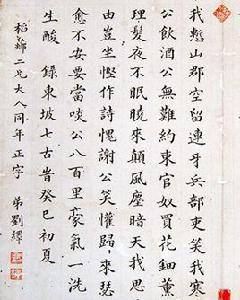 我慙山郡空留連牙兵部吏笑我寒
公飲酒公無難約束官奴買花鈿薰
理鬢夜不眠曉來顛風塵暗天我思
由豈坐慳作詩愧謝公笑讙歸來瑟
愈不安要當啖公八百里豪氣一洗
生酸 錄東坡七古旹癸巳初夏
二兄大人同年正字 弟劉繹